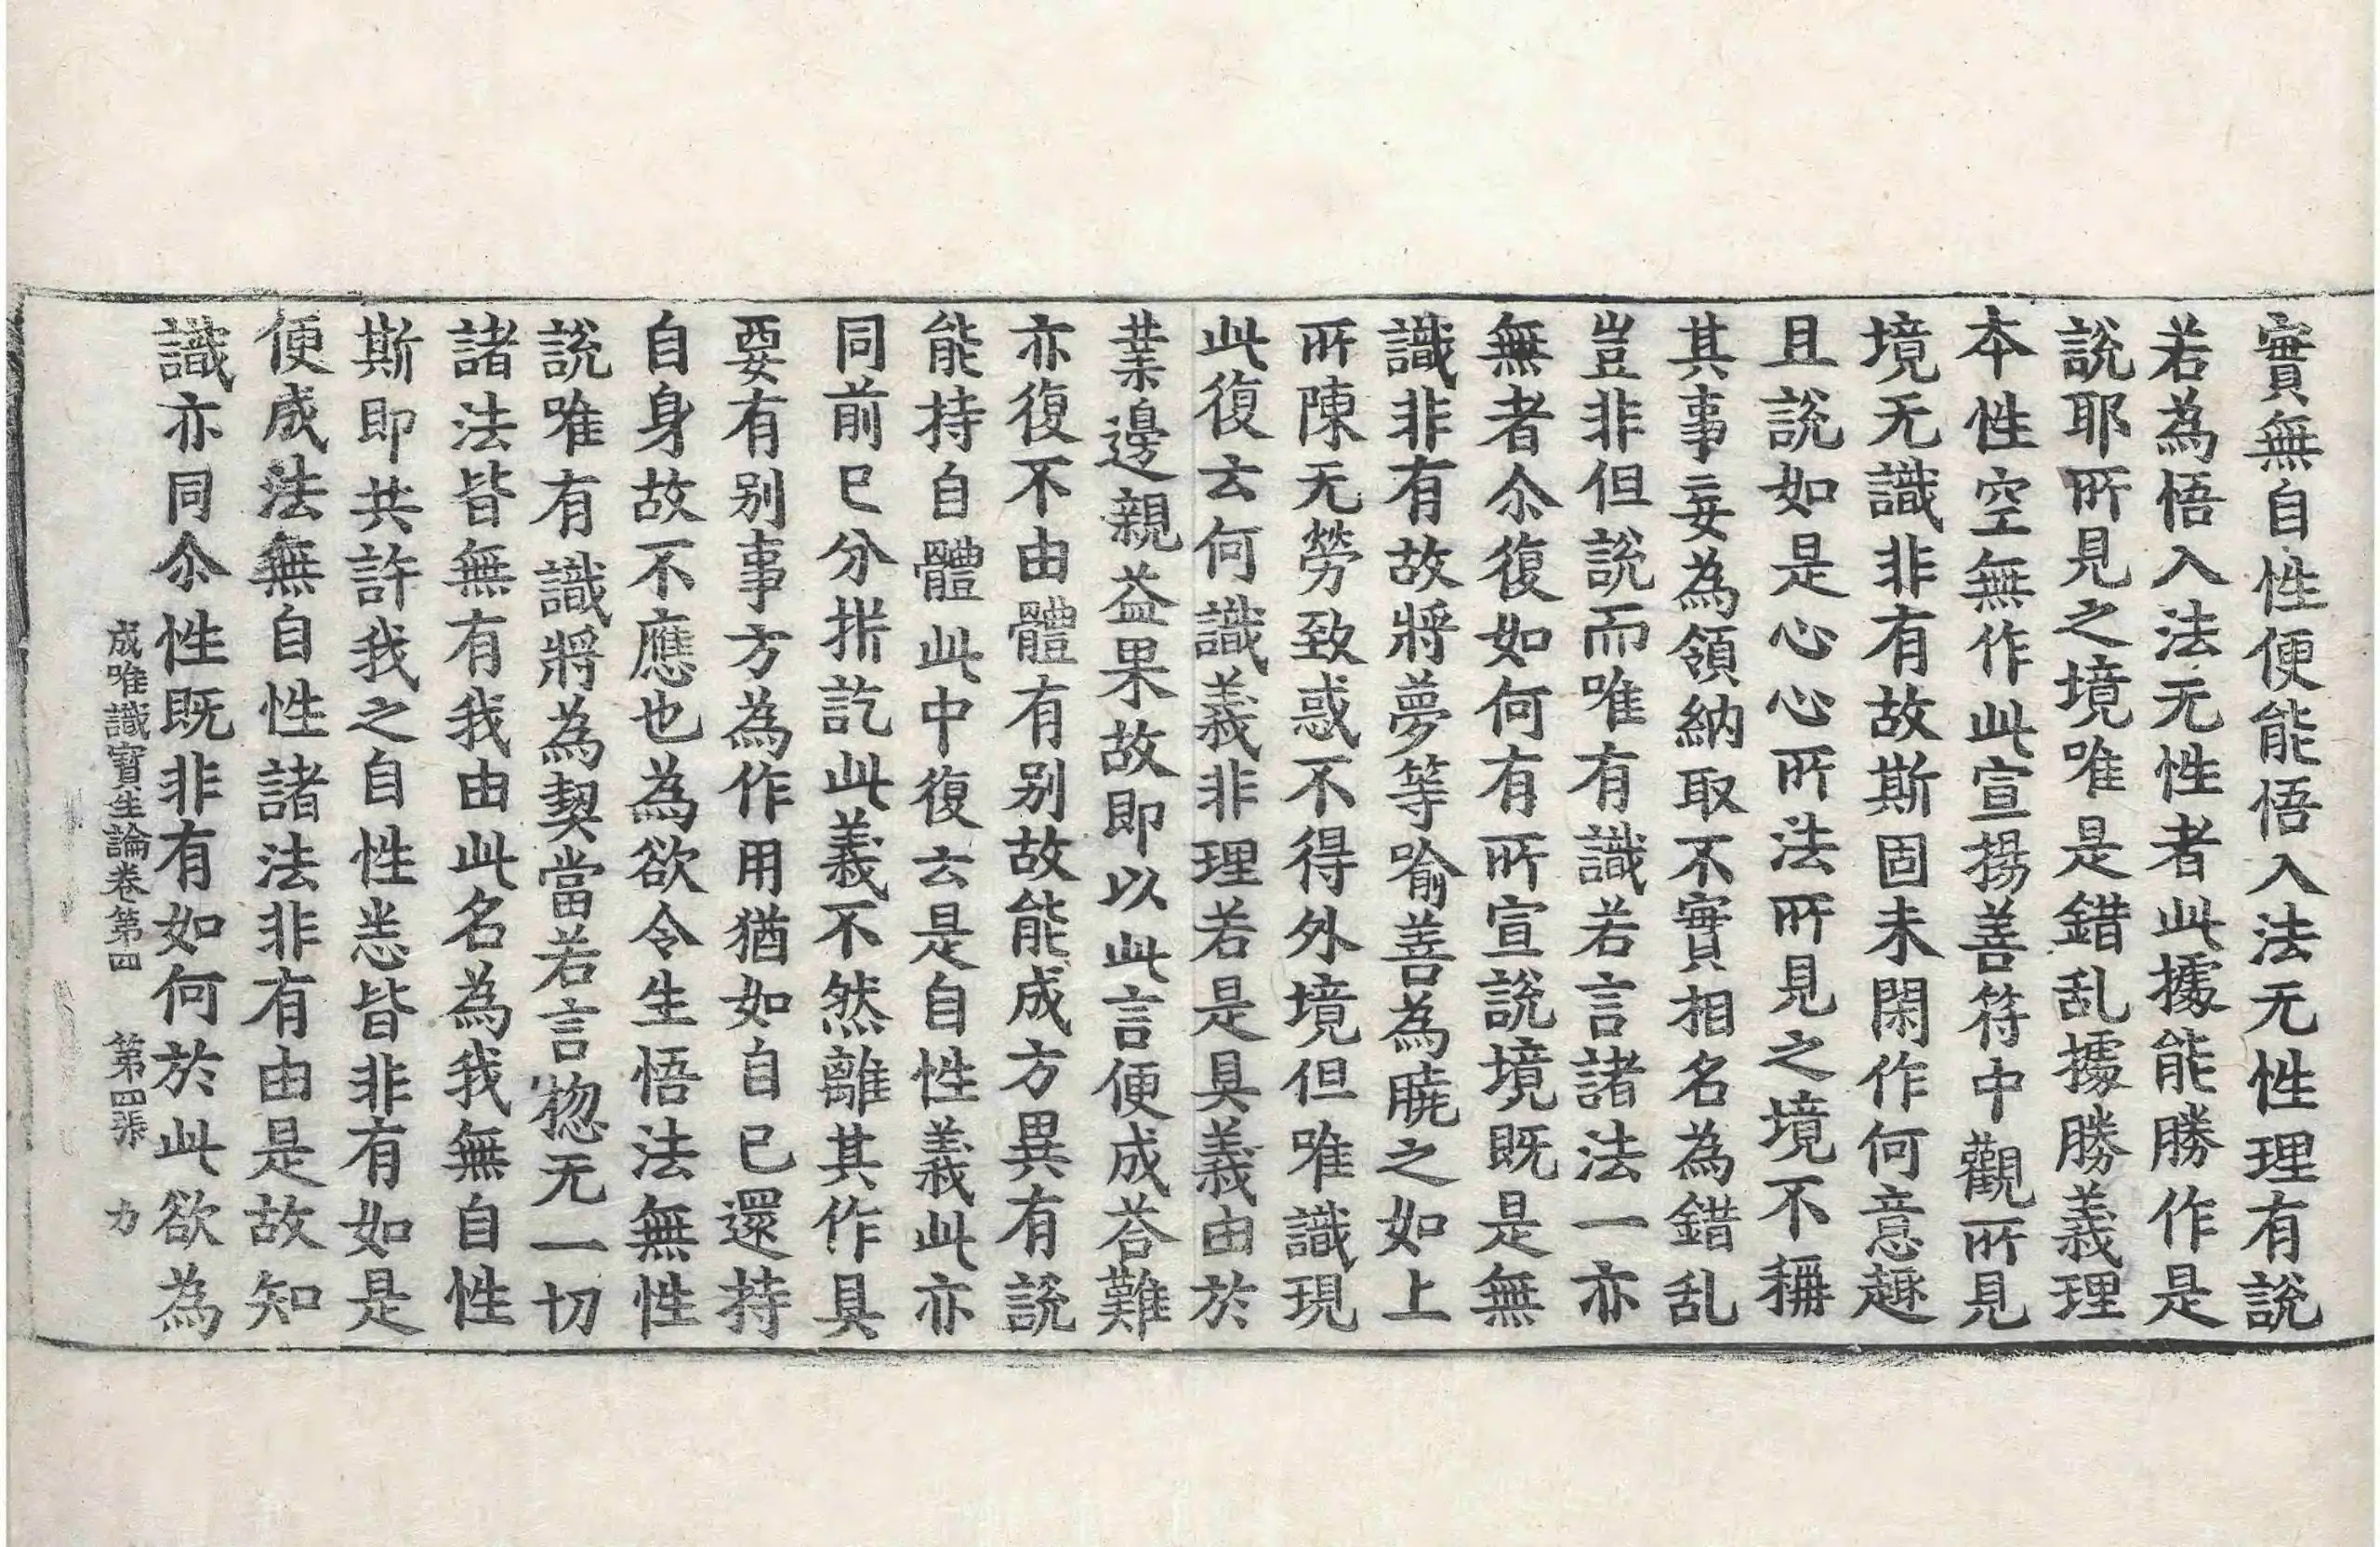 實無自性便能悟入法无性理有說
若為悟入法无性者此據能勝作是
說耶所見之境唯是錯乱據勝義理
本性空無作此宣揚善符中觀所見
境无識非有故斯固未閑作何意趣
且說如是心心所法所見之境不稱
其事妄為領納取不實相名為錯乱
豈非但說而唯有識若言諸法一亦
無者尒復如何有所宣說境既是無
識非有故將夢等喻善為曉之如上
所陳无勞致惑不得外境但唯識現
此復云何識義非理若是具義由於
業邊親益果故即以此言便成荅難
亦復不由體有別故能成方異有說
能持自體此中復云是自性義此亦
同前已分拆訖此義不然離其作具
要有別事方為作用猶如自已還持
自身故不應也為欲令生悟法無性
說唯有識將為契當若言惣无一切
諸法皆無有我由此名為我無自性
斯即共許我之自性恙皆非有如是
便成法無自性諸法非有由是故知
識亦同尒性既非有如何於此欲為
成唯識寶生論卷第四 第四張 力